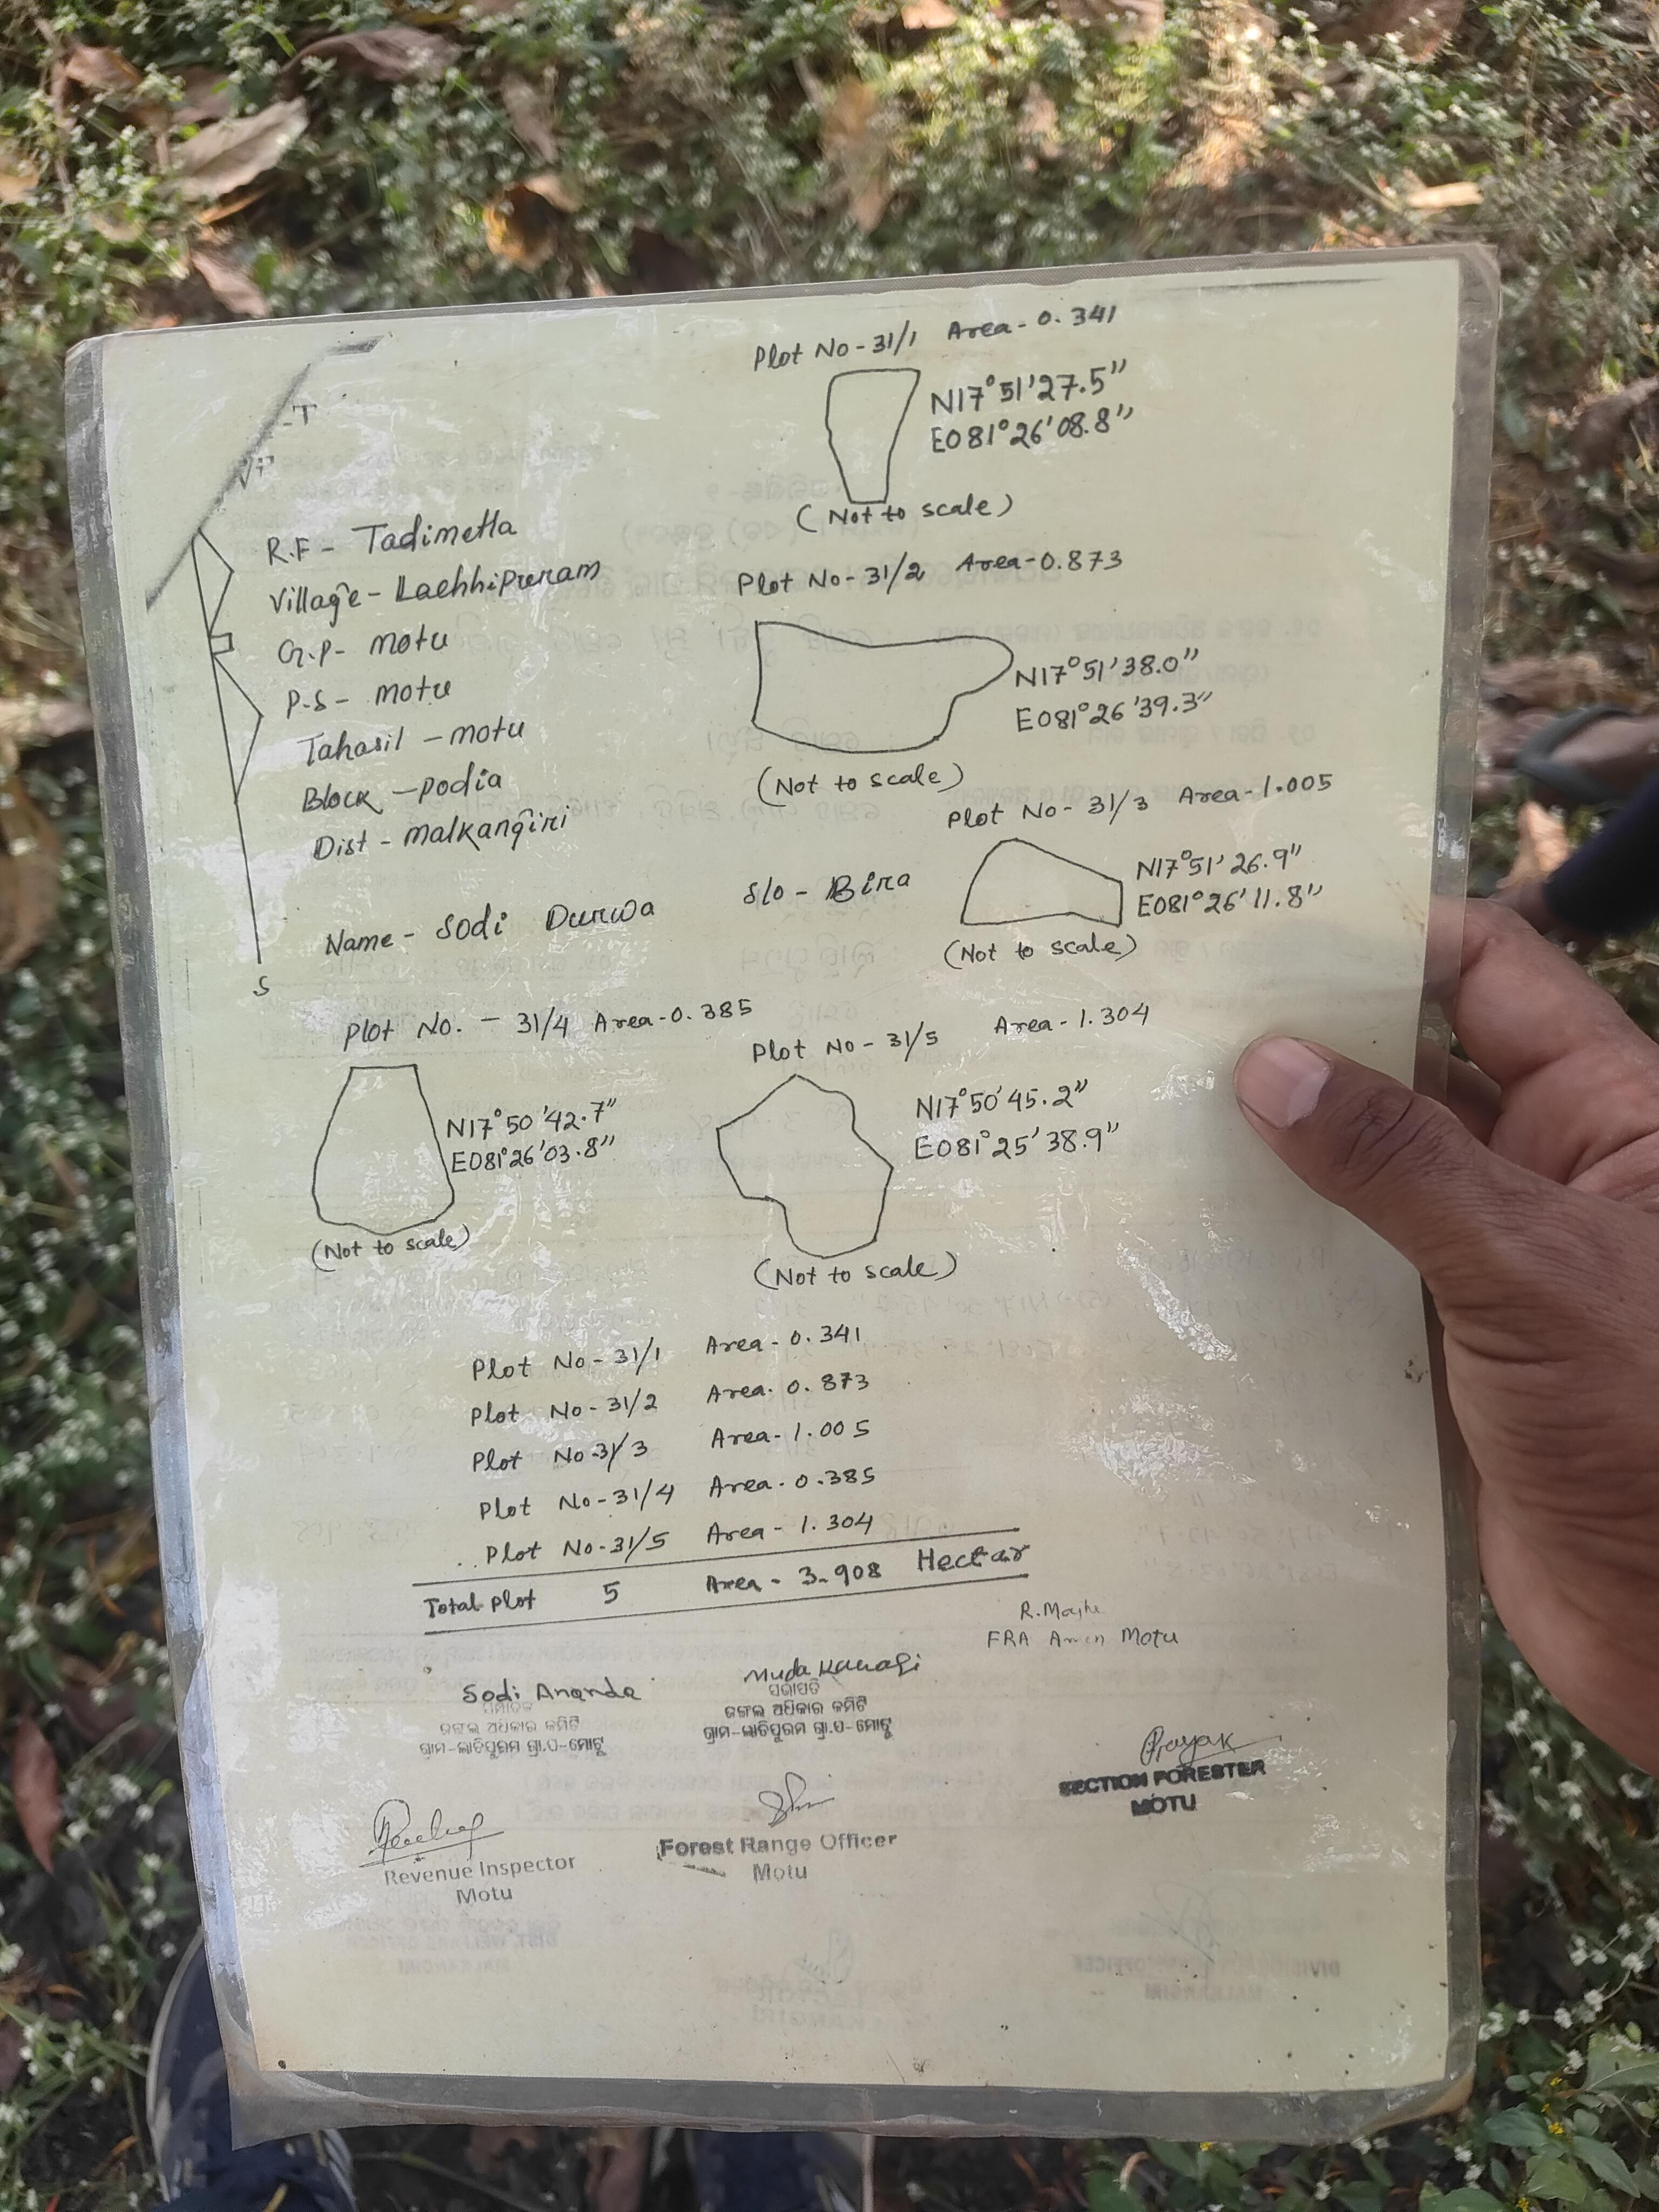 Plot No-31/1 Area-0.341
N17°51'27.5"
E081°26'08.8"
(Not to scale)
R.F - Tadimetla
Village - Lachhipuram
G.P - Motu
P.S - Motu
Tahasil - Motu
Block - Podia
Dist - Malkangiri
Plot No-31/2 Area-0.873
N17°51'38.0"
E081°26'39.3"
(Not to scale)
Plot No-31/3 Area-1.005
N17°51'26.9"
E081°26'11.8"
(Not to scale)
Name - Sodi Durwa S/o - Bira
S
Plot No. - 31/4 Area-0.385
N17°50'42.7"
E081°26'03.8"
(Not to scale)
Plot No-31/5 Area-1.304
N17°50'45.2"
E081°25'38.9"
(Not to scale)
Plot No-31/1 Area-0.341
Plot No-31/2 Area. 0.873
Plot No-31/3 Area-1.005
Plot No-31/4 Area-0.385
Plot No-31/5 Area-1.304
Total plot 5 Area - 3.908 Hectar
FRA Amin Motu
Sodi Ananda
ଜଙ୍ଗଲ ଅଧିକାର କମିଟି
ଗ୍ରାମ-ଲାଚିପୁରମ ଗ୍ରା.ପ-ମୋଟୁ
Muda
ସଭାପତି
ଜଙ୍ଗଲ ଅଧିକାର କମିଟି
ଗ୍ରାମ-ଲାଚିପୁରମ ଗ୍ରା.ପ-ମୋଟୁ
SECTION FORESTER
MOTU
Revenue Inspector
Motu
Forest Range Officer
Motu